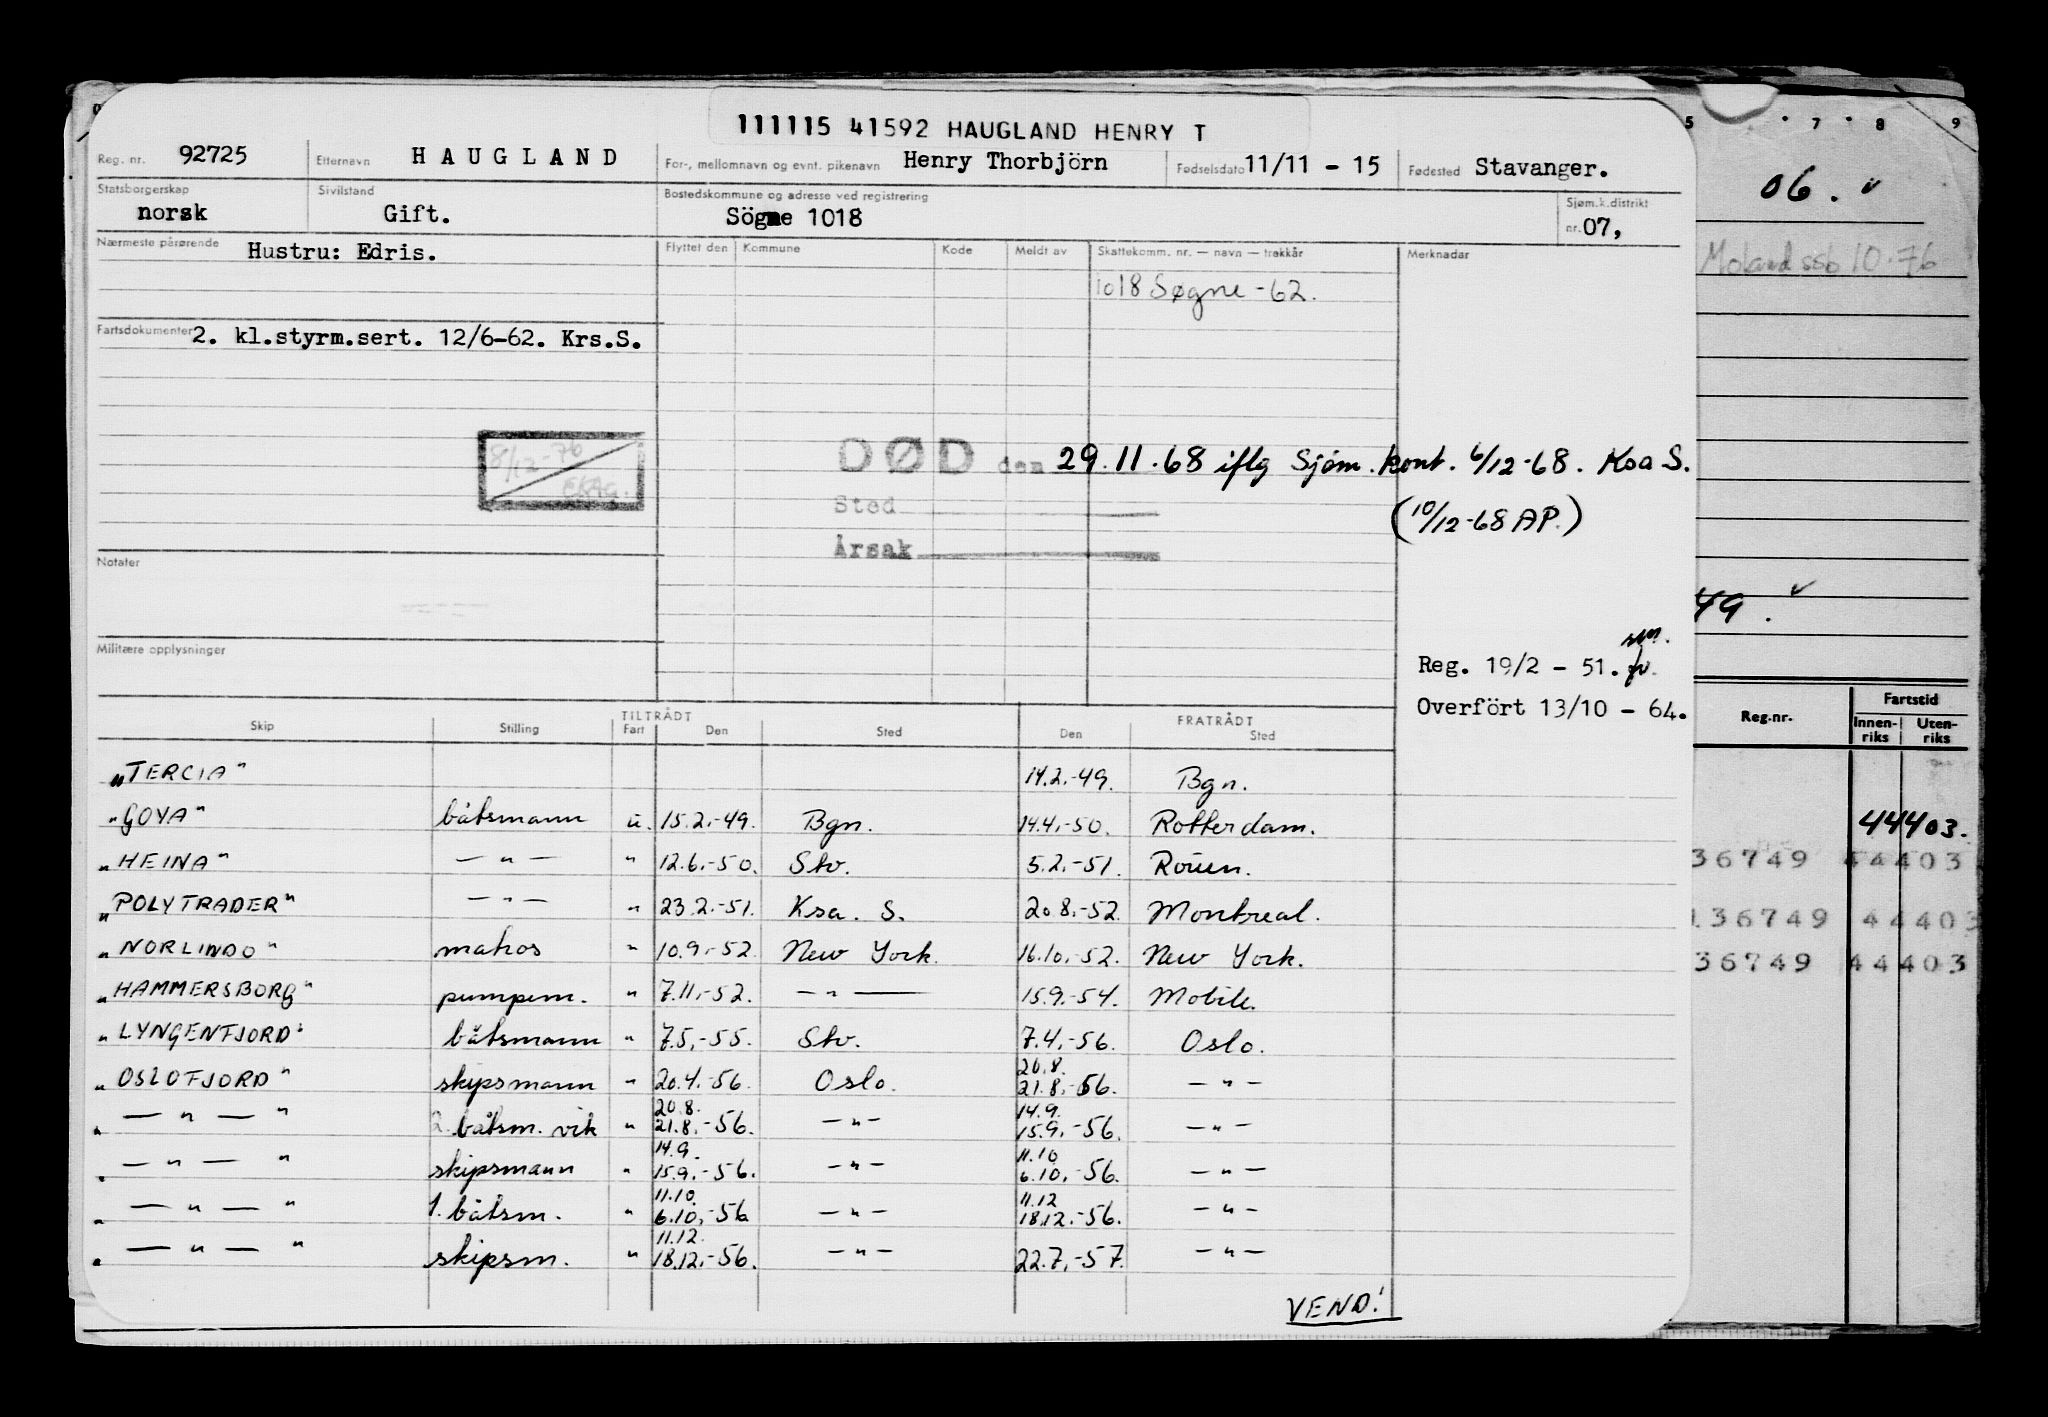 111115 41592 HAUGLAND HENRY T
Reg. nr. 92725 Etternavn HAUGLAND For-, mellomnavn og evnt. pikenavn Henry Thorbjörn Fødselsdato 11/11 - 15 Fødested Stavanger.
Statsborgerskap norsk Sivilstand Gift. Bostedskommune og adresse ved registrering Sögne 1018 Sjøm.k.distrikt nr. 07,
Nærmeste pårørende Hustru: Edris. Flyttet den Kommune Kode Meldt av Skattekomm. nr. — navn — trekkår Merknader
1018 Søgne -62.
Fartsdokumenter 2. kl.styrm.sert. 12/6-62. Krs.S.
8/12-76
DØD den 29.11.68 iflg Sjøm.kont. 6/12-68. Ksa S.
(10/12-68 AP.)
Sted
Årsak
Notater
Militære opplysninger
Reg. 19/2 - 51.
Overfört 13/10 - 64.
Skip Stilling TILTRÅDT Fart Den Sted FRATRÅDT Den Sted
"TERCIA" 14.2.-49. Bgn.
"GOYA" båtsmann u. 15.2.-49. Bgn. 14.4.-50. Rotterdam.
"HEINA" — " — " 12.6.-50. Stv. 5.2.-51. Rouen.
"POLYTRADER" — " — " 23.2.-51. Ksa. S. 20.8.-52. Montreal.
"NORLINDO" matros " 10.9.-52. New York. 16.10.-52. New York.
"HAMMERSBORG" pumpem. " 7.11.-52. — " — 15.9.-54. Mobile.
"LYNGENFJORD" båtsmann " 7.5.-55. Stv. 7.4.-56. Oslo.
"OSLOFJORD" skipsmann " 20.4.-56. Oslo. 20.8. 21.8.-56. — " —
" — " — " 2. båtsm. vik " 20.8. 21.8.-56. — " — 14.9. 15.9.-56. — " —
" — " — " skipsmann " 14.9. 15.9.-56. — " — 11.10 6.10.-56. — " —
" — " — " 1. båtsm. " 11.10 6.10.-56 — " — 11.12 18.12.-56. — " —
" — " — " skipsm. " 11.12. 18.12.-56. — " — 22.7.-57. — " —
VEND!
5 7 8 9
06.
Moland ssb 10.76
49.
Reg.nr. Fartstid
Innen-riks Uten-riks
44403.
36749 44403
136749 44403
36749 44403